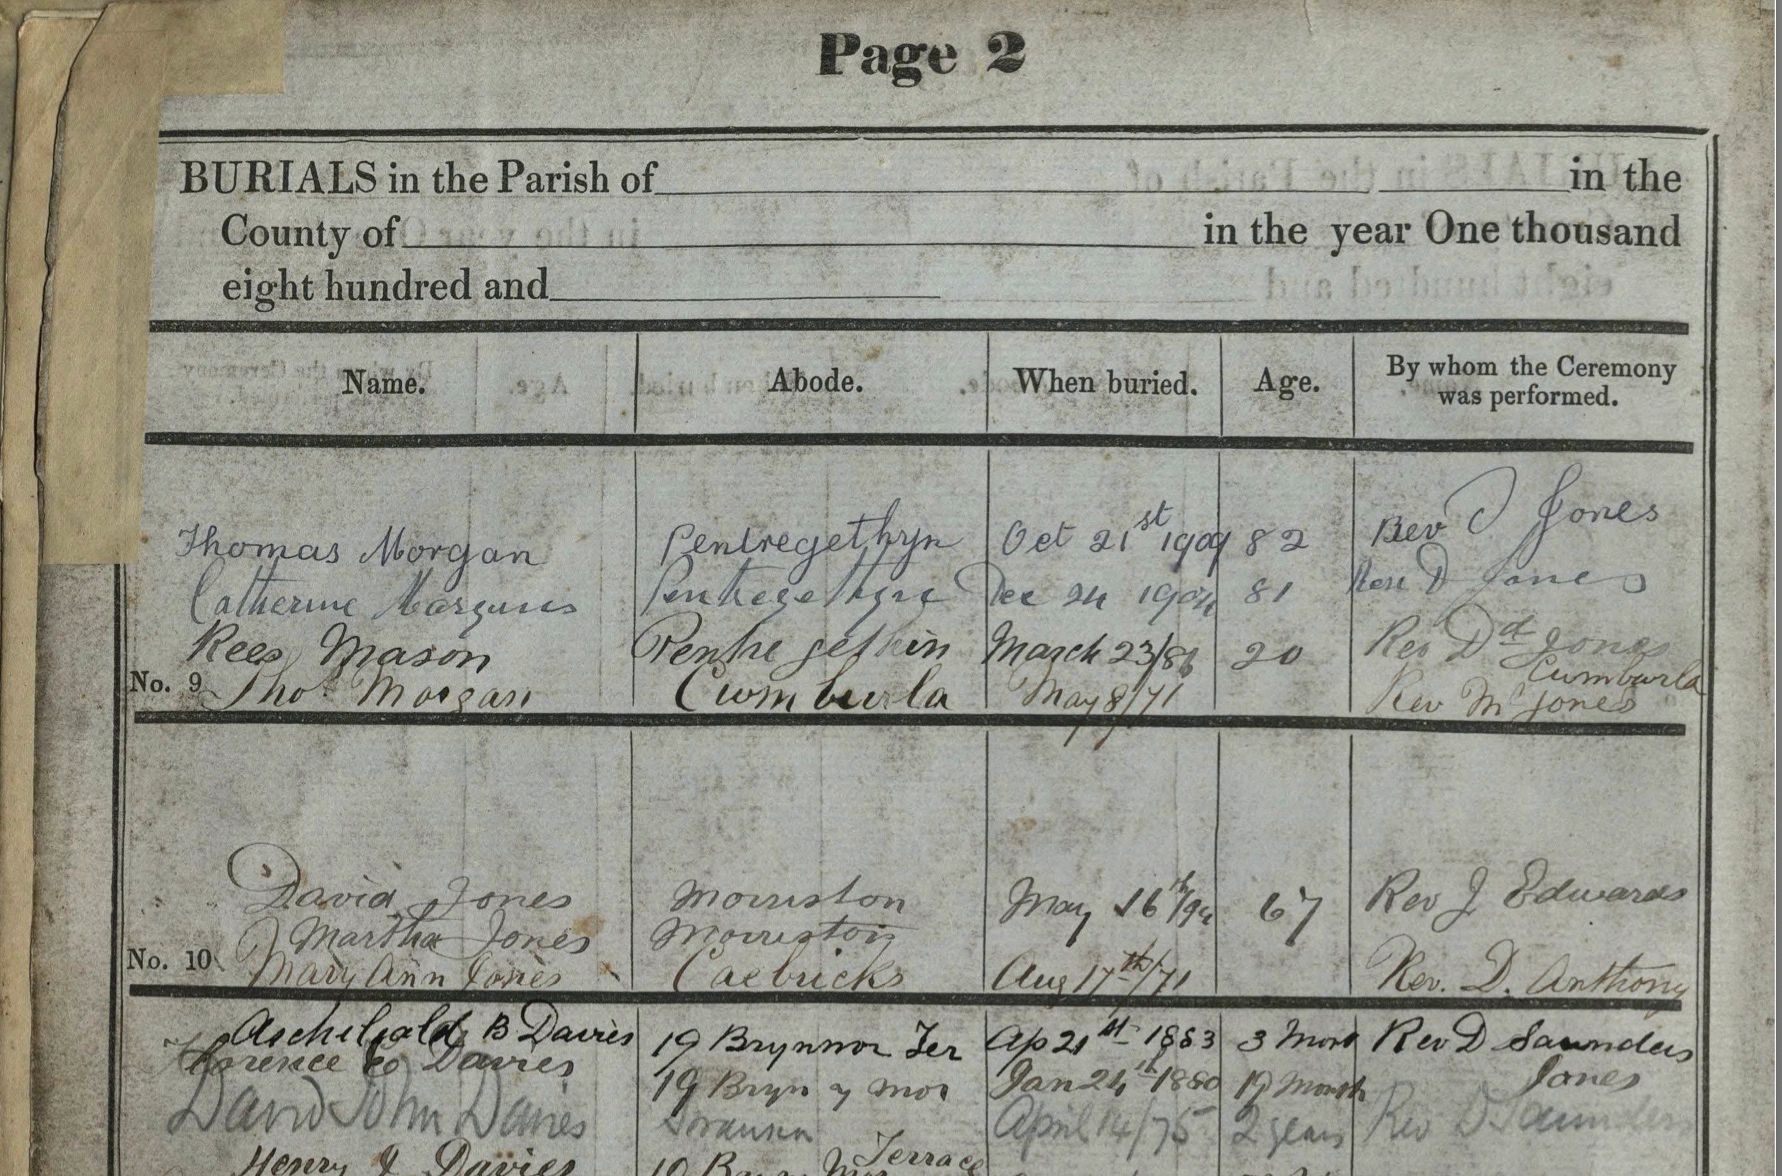 Page 2
BURIALS in the Parish of in the
County of in the year One thousand
eight hundred and
Name. Abode. When buried. Age. By whom the Ceremony
was performed.
Thomas Morgan Pentregethyn Oct 21st 1909 82 Rev J Jones
Catherine 81 Rev D Jones
Rees Mason March 23/86 20 Rev Dd Jones
Cwmburla
No. 9 Thos Morgan Cwmburla May 8/71 Rev Jones
David Jones Morriston May 16th/94 67 Rev J Edwards
Martha Jones Morriston
No. 10 Mary Ann Jones Caebricks Aug 17th/71 Rev. D. Anthony
Archibald B Davies 19 Brynmor Ter Ap 21st 1883 3 Mont Rev D Saunders
Florence E Davies 19 Bryn y mor Jan 24th 1880 19 Month Jones
David John Davies April 14/75 2 years Rev D Saunders
Henry J Davies Terrace